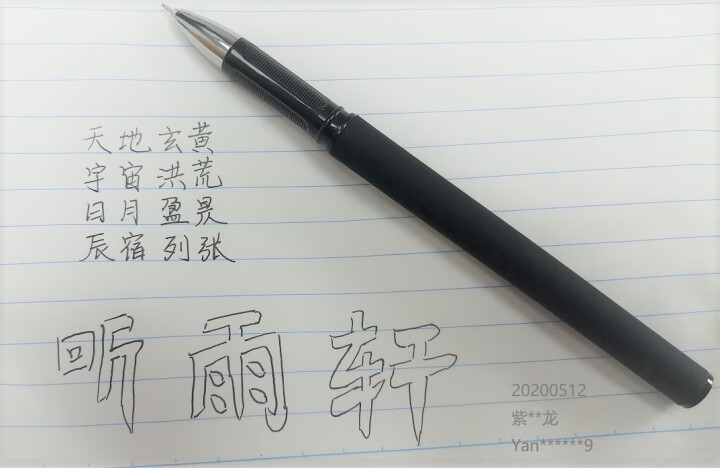 天地玄黄
宇宙洪荒
日月盈昃
辰宿列张
听雨轩
20200512
紫**龙
Yan******9